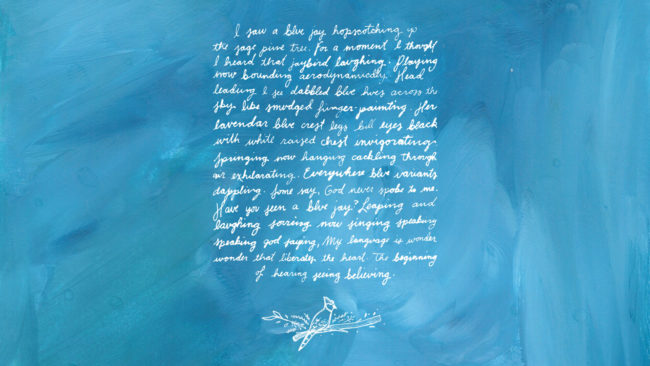 I saw a blue jay hopscotching up
the sage pine tree. For a moment I thought
I heard that jaybird laughing. Playing
now bounding aerodynamically. Head
leading I see dabbled blue hues across the
sky like smudged finger-painting. Her
lavendar blue crest legs bill eyes black
with white raised chest invigorating
springing now hanging cackling through
air exhilarating. Everywhere blue variants
dappling. Some say, God never spoke to me.
Have you seen a blue jay? Leaping and
laughing soaring now singing speaking
speaking god saying, My language is wonder
wonder that liberates the heart. The beginning
of hearing seeing believing.